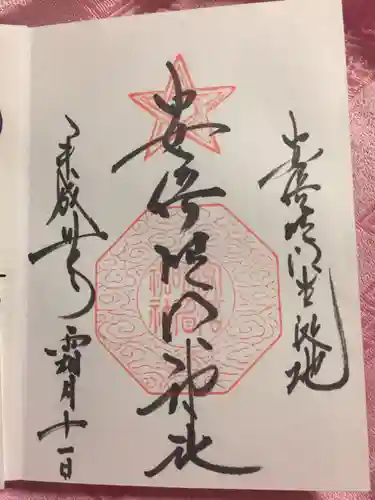 安倍晴明生誕地
安倍晴明神社
平成卅年 霜月十一日